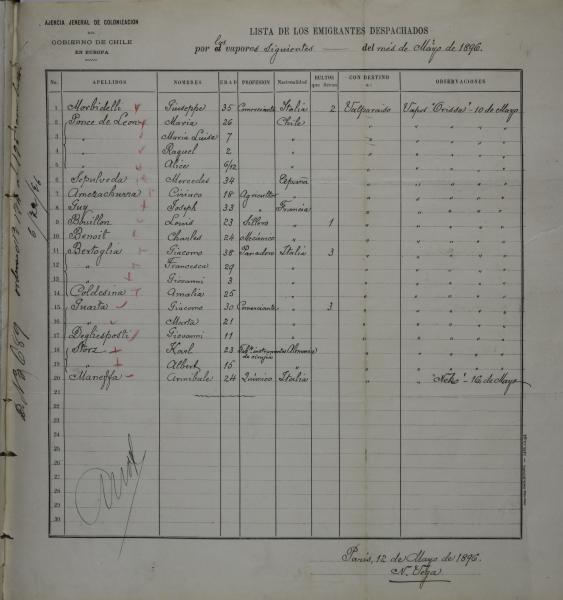 AJENCIA JENERAL DE COLONIZACION
DEL
GOBIERNO DE CHILE
EN EUROPA
LISTA DE LOS EMIGRANTES DESPACHADOS
por los vapores siguientes del mes de Mayo de 1896.
No. APELLIDOS NOMBRES EDAD PROFESION Nacionalidad BULTOS que llevan CON DESTINO a: OBSERVACIONES
1 Morbidelli Giuseppe 35 Comerciante Italia 2 Valparaiso Vapor "Orissa" - 10 de Mayo
2 Ponce de Leon Maria 26 Chile " "
3 " Maria Luisa 7 " " "
4 " Raquel 2 " " "
5 " Alice 6/12 " " "
6 Sepulveda Mercedes 34 España " "
7 Ciriaco 18 Agricultor " " "
8 Guy Joseph 33 Francia " "
9 Bouillon Louis 23 Sillero " 1 " "
10 Benoit Charles 24 Mecanico " " "
11 Bertoglia Giacomo 38 Panadero Italia 3 " "
12 " Francesca 29 " " "
13 " Giovanni 3 " " "
14 Coldesina Amalia 25 " " "
15 Guarta Giacomo 30 Comerciante " 3 " "
16 " Marta 21 " " "
17 Degliesposti Giovanni 11 " " "
18 Storz Karl 23 instrumentos de cirujia Alemania " "
19 " Albert 15 " " "
20 Maneffa Annibale 24 Quimico Italia " 16 de Mayo
21
22
23
24
25
26
27
28
29
30
Paris, 12 de Mayo de 1896.
N. Vega